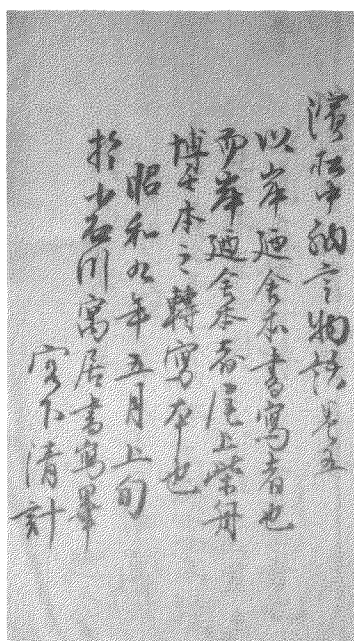 濱松中納言物語巻五
以岸廼舎本書寫者也
而岸廼舎本者尾上柴舟
博士本之轉寫本也
昭和九年五月上旬
於小石川寓居書寫畢
宮下清計